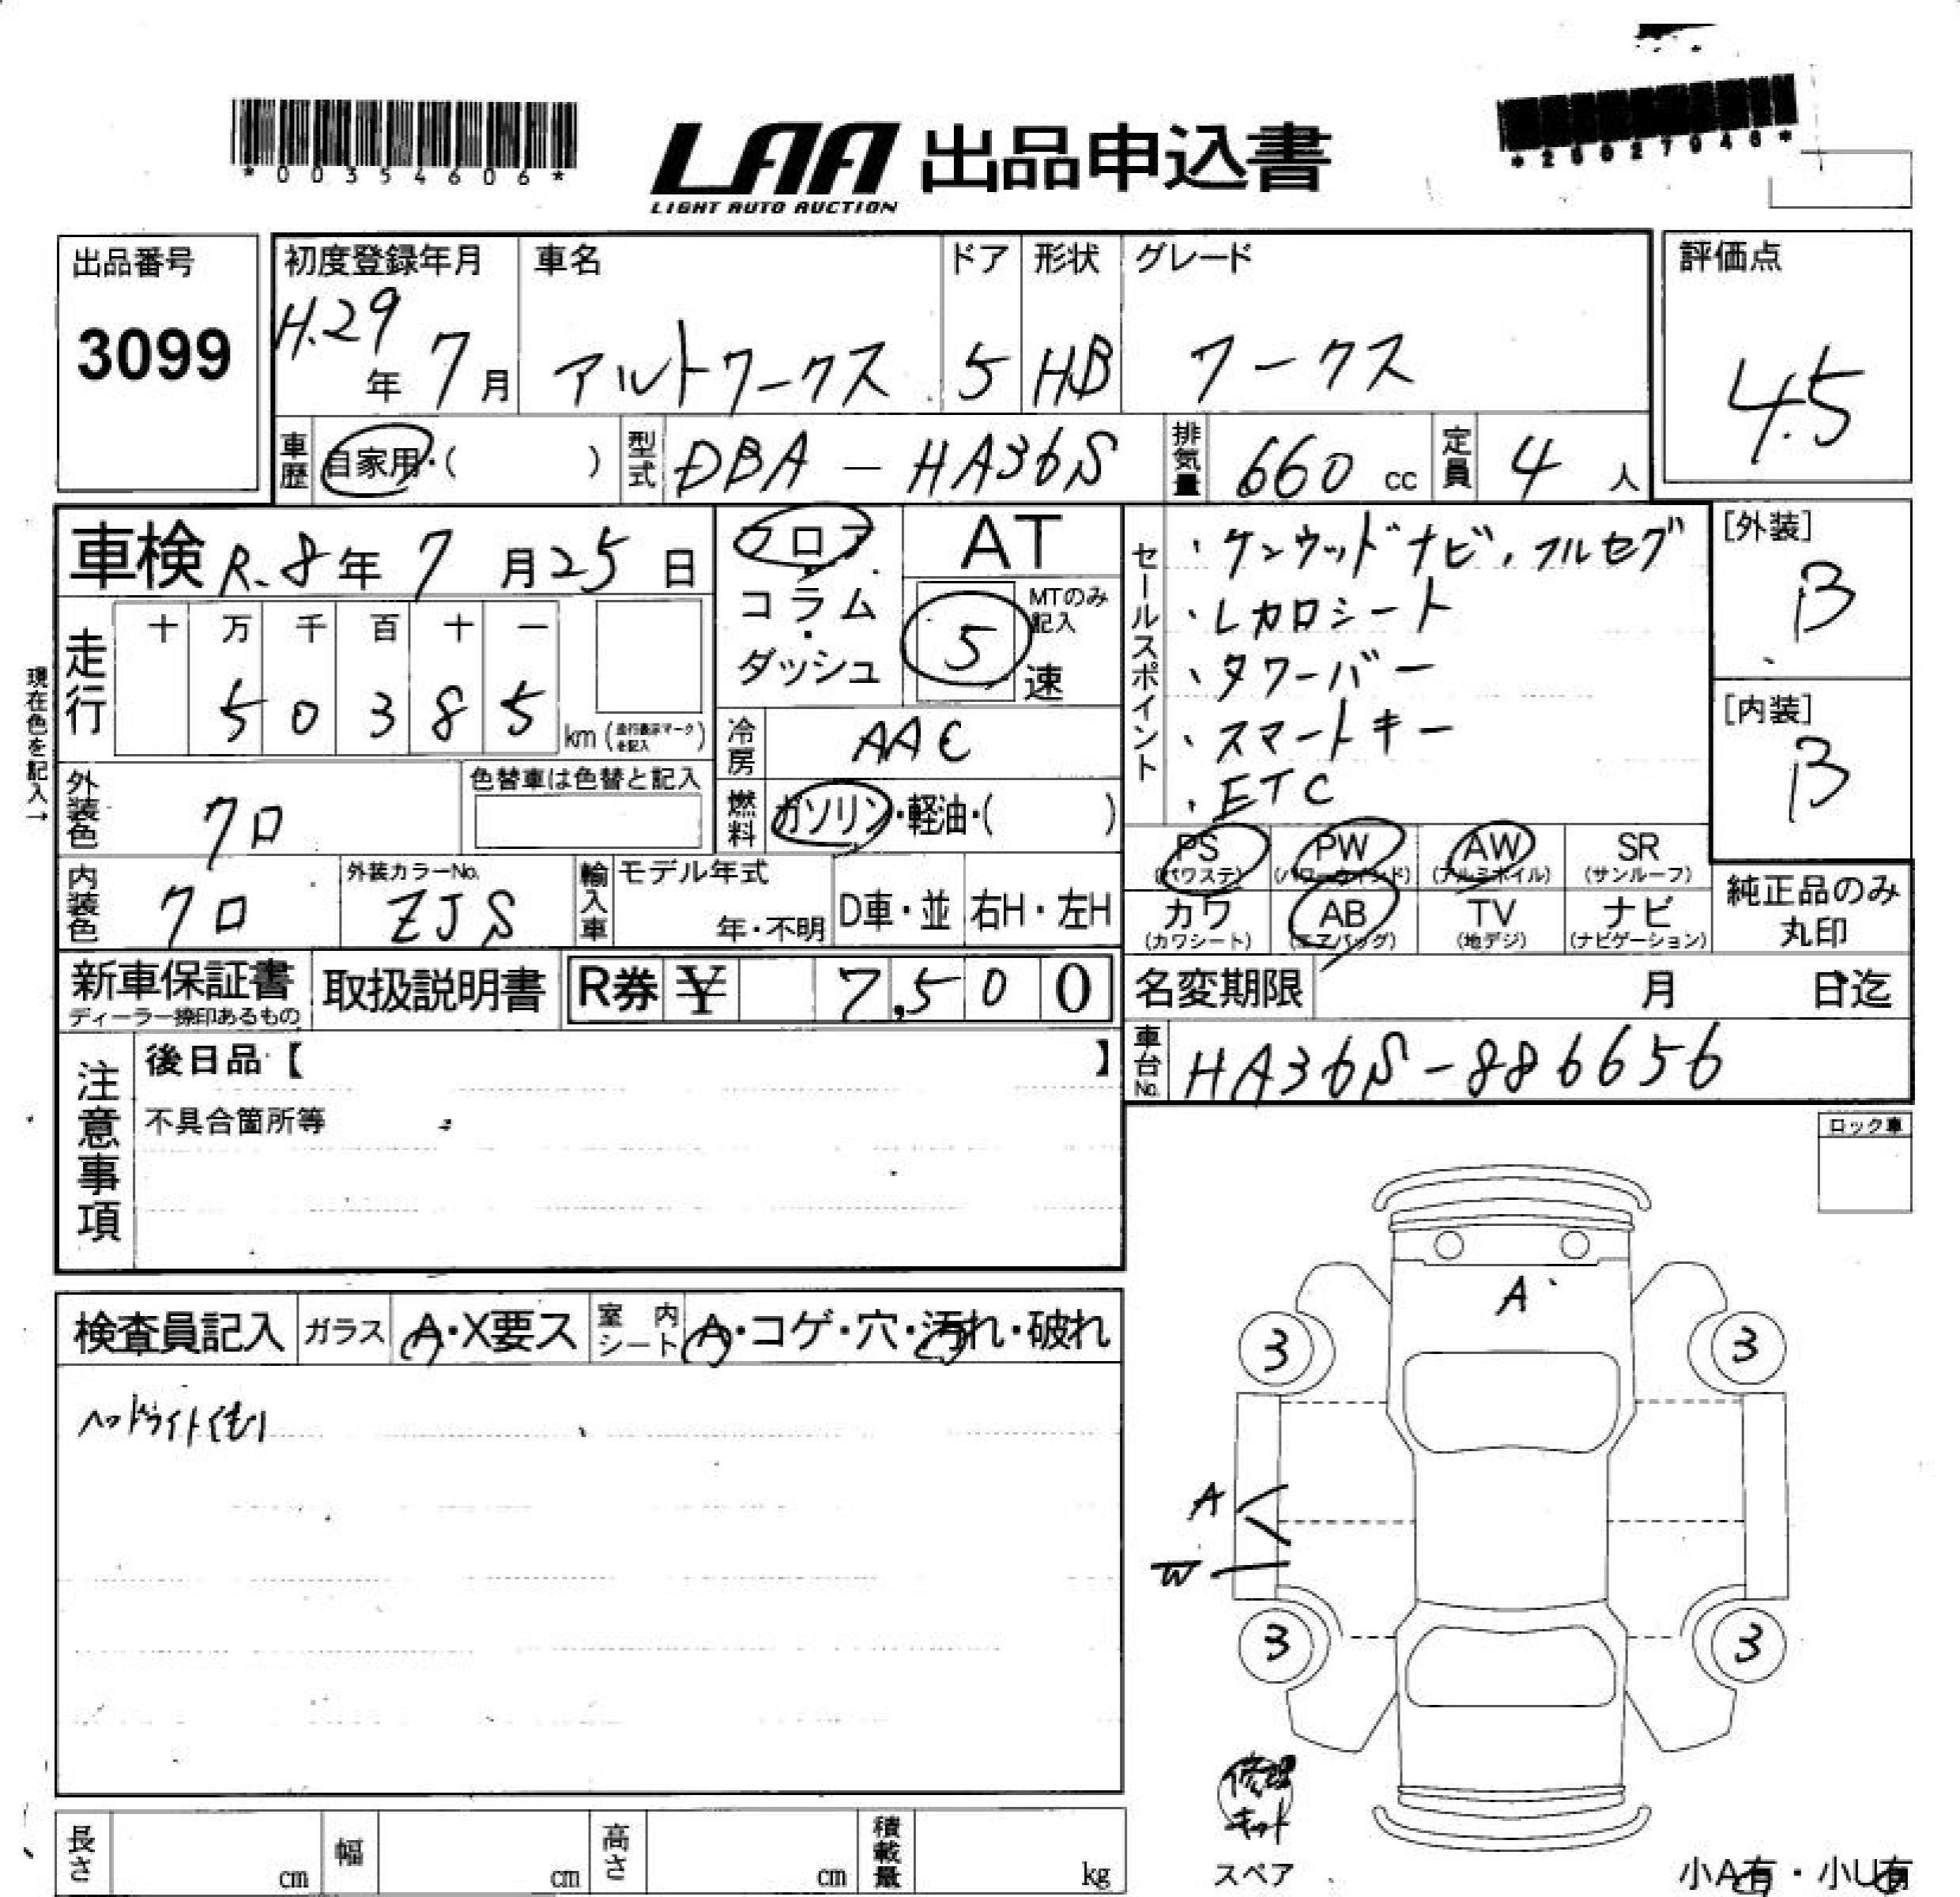 *00354606*
LAA 出品申込書
LIGHT AUTO AUCTION
*25027046*
出品番号
3099
初度登録年月
H.29年 7月
車名
アルトワークス
ドア
5
形状
HB
グレード
ワークス
評価点
4.5
車歴 自家用・( )
型式 DBA-HA36S
排気量 660 cc
定員 4 人
車検 R.8年 7月25日
フロア
・
コラム
・
ダッシュ
AT
MTのみ記入
5 速
セールスポイント
・ケンウッドナビ、フルセグ
・レカロシート
・タワーバー
・スマートキー
・ETC
[外装]
B
[内装]
B
現在色を記入→
走行
十 万 千 百 十 一
5 0 3 8 5 km (走行表示マークを記入)
冷房 AAC
燃料 ガソリン・軽油・( )
外装色 クロ
色替車は色替と記入
内装色 クロ
外装カラーNo.
ZJS
輸入車
モデル年式
年・不明
D車・並
右H・左H
PS (パワステ)
PW (パワーウインド)
AW (アルミホイル)
SR (サンルーフ)
カワ (カワシート)
AB (エアバッグ)
TV (地デジ)
ナビ (ナビゲーション)
純正品のみ
丸印
新車保証書
ディーラー捺印あるもの
取扱説明書
R券 ¥ 7,500
名変期限 月 日迄
車台No. HA36S-886656
注意事項
後日品【 】
不具合箇所等
ロック車
検査員記入
ガラス A・X要ス
室内シート A・コゲ・穴・汚れ・破れ
ヘッドライトくもり
A
3
3
A
W
3
3
修理
キット
スペア
小A有・小U有
長さ cm
幅 cm
高さ cm
積載量 kg